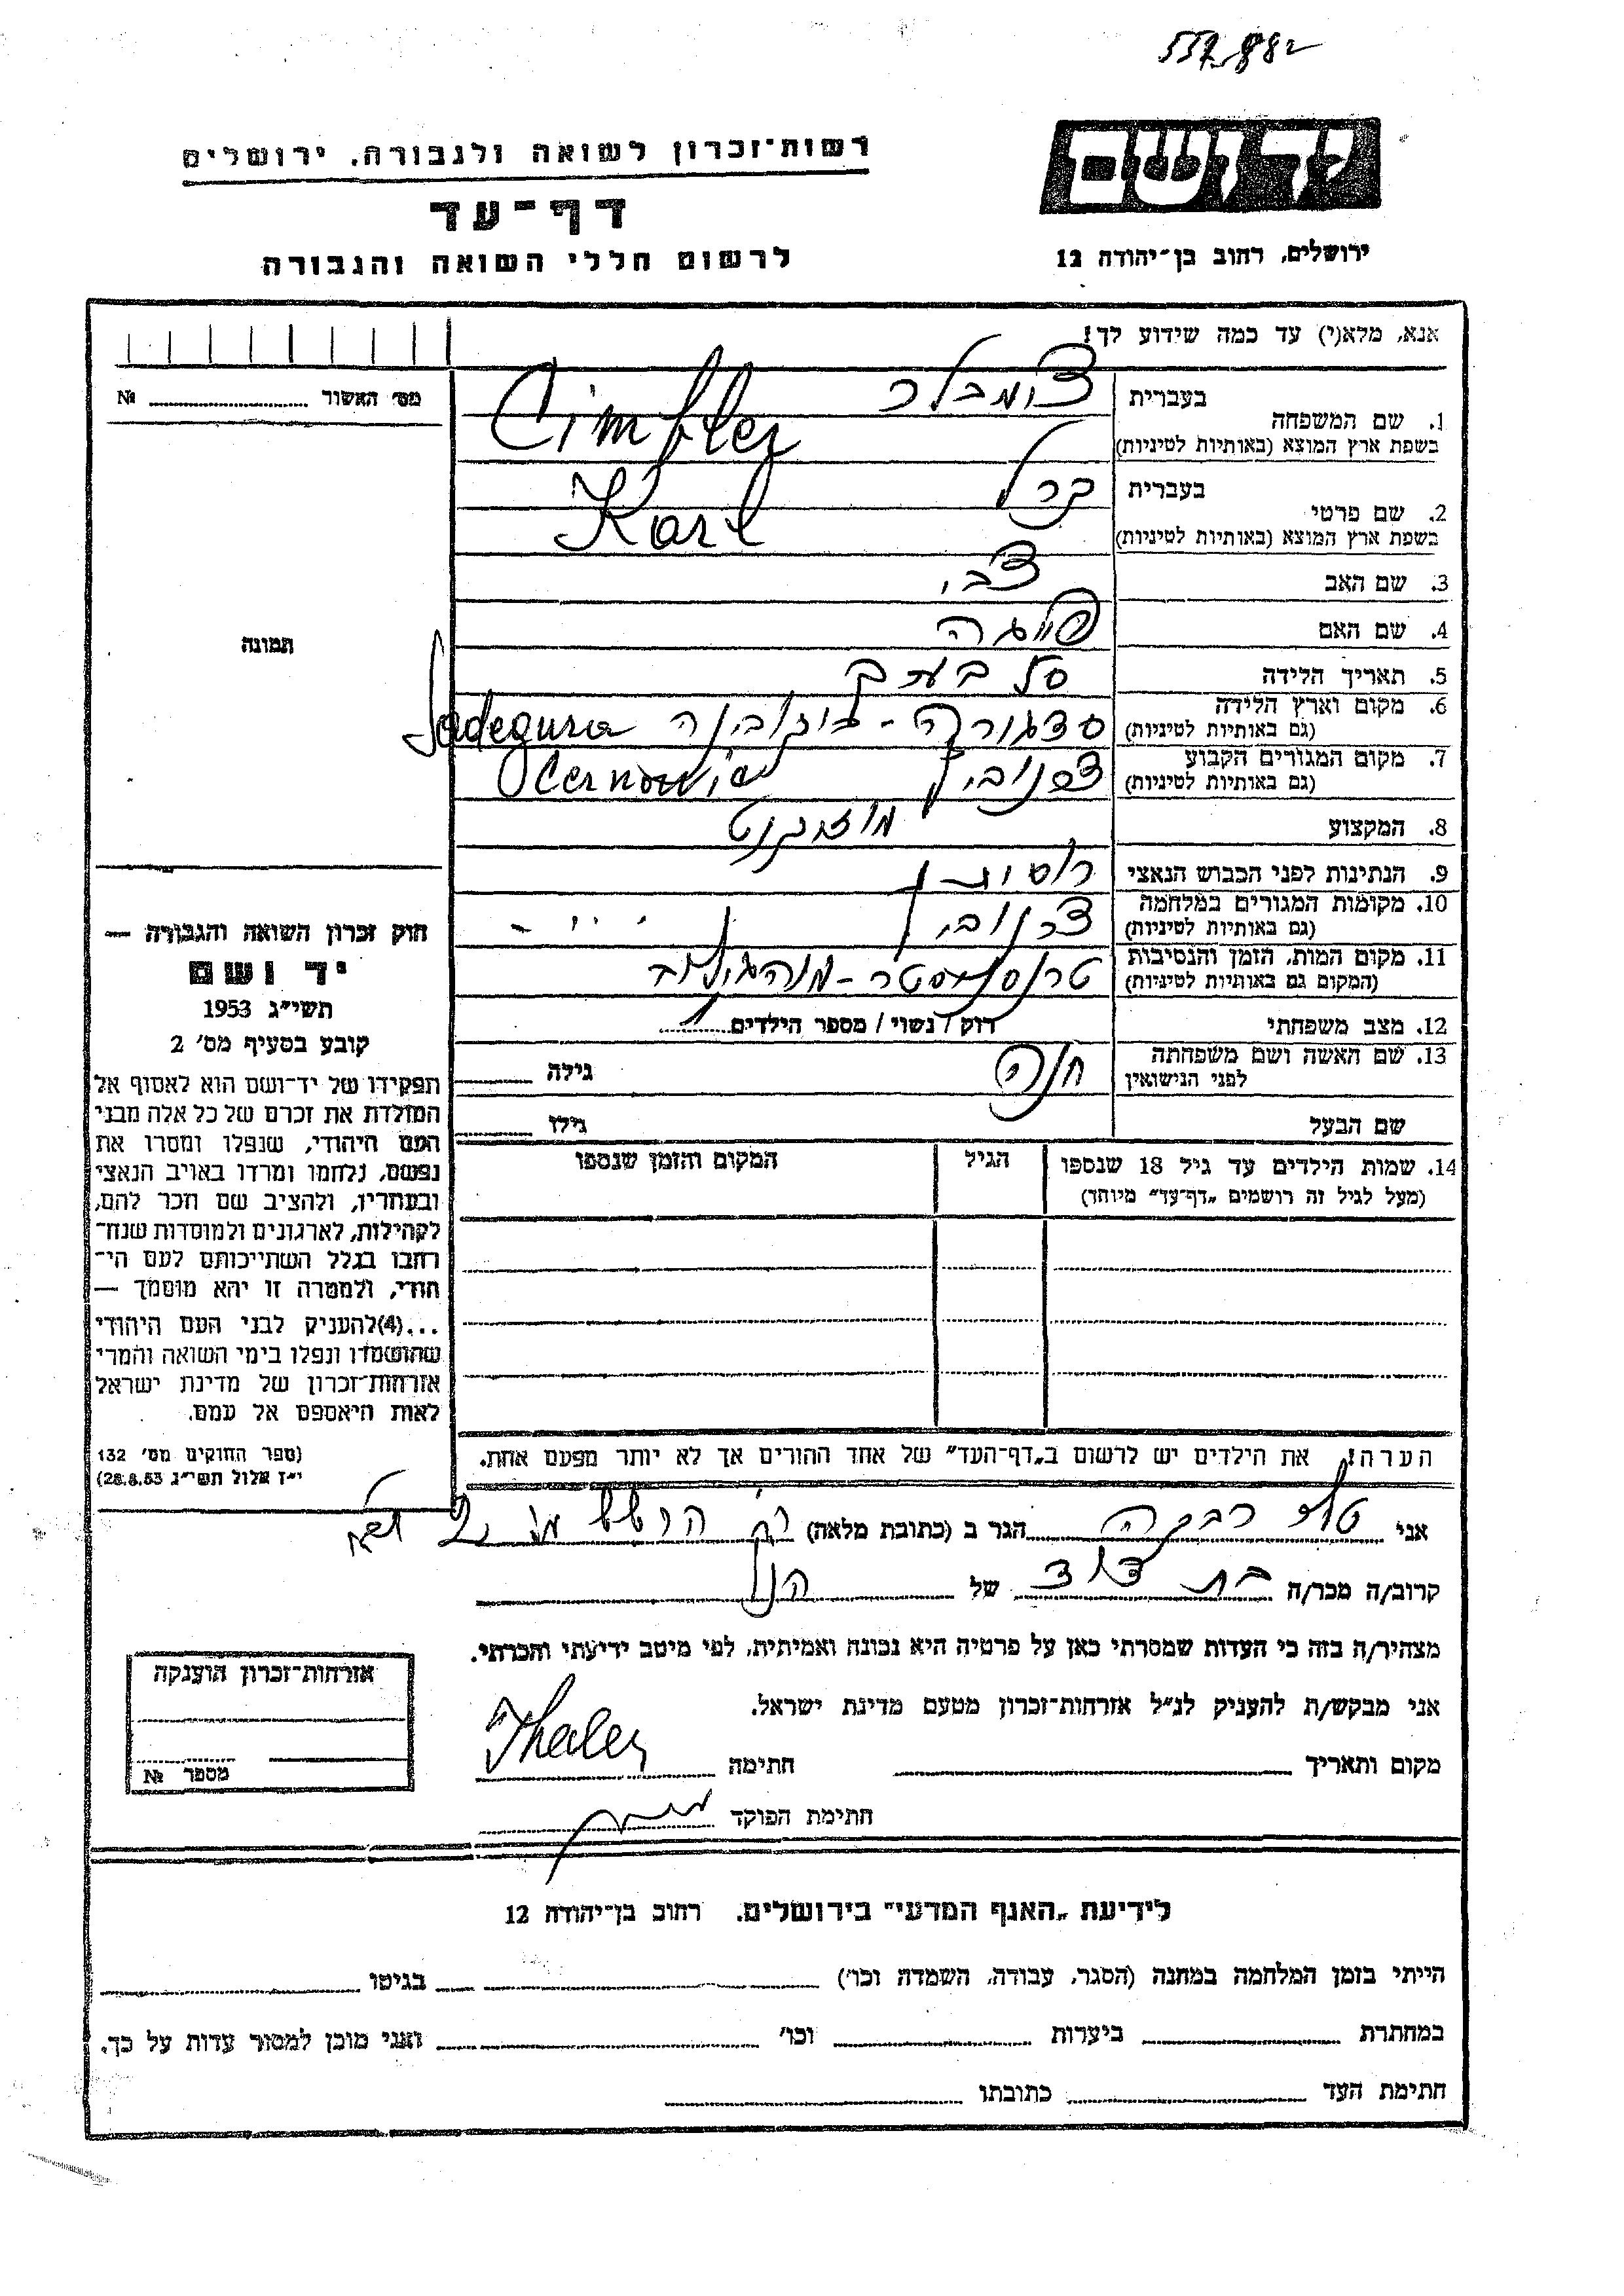 557,882
רשות־זכרון לשואה ולגבורה, ירושלים
יד ושם
דף־עד
לרשום חללי השואה והגבורה
ירושלים, רחוב בן־יהודה 12
אנא, מלא(י) עד כמה שידוע לך!
מס׳ האשור № 
1. שם המשפחה
בעברית צימבלר
בשפת ארץ המוצא (באותיות לטיניות) Cimbler
2. שם פרטי
בעברית קרל
בשפת ארץ המוצא (באותיות לטיניות) Karl
3. שם האב צבי
4. שם האם פייגה
תמונה
5. תאריך הלידה
6. מקום וארץ הלידה (גם באותיות לטיניות) סדגורה - בוקובינה Sadegura
7. מקום המגורים הקבוע (גם באותיות לטיניות) Cernowic
8. המקצוע
9. הנתינות לפני הכבוש הנאצי
10. מקומות המגורים במלחמה (גם באותיות לטיניות)
11. מקום המות, הזמן והנסיבות (המקום גם באותיות לטיניות)
12. מצב משפחתי רוק / נשוי / מספר הילדים 1
13. שם האשה ושם משפחתה לפני הנישואין חנה גילה
שם הבעל גילו
14. שמות הילדים עד גיל 18 שנספו (מעל לגיל זה רושמים „דף־עד״ מיוחד)
הגיל
המקום והזמן שנספו
חוק זכרון השואה והגבורה —
יד ושם
תשי״ג 1953
קובע בסעיף מס׳ 2
תפקידו של יד־ושם הוא לאסוף אל
המולדת את זכרם של כל אלה מבני
העם היהודי, שנפלו ומסרו את
נפשם, נלחמו ומרדו באויב הנאצי
ובעוזריו, ולהציב שם וזכר להם,
לקהילות, לארגונים ולמוסדות שנח־
רחבו בגלל השתייכותם לעם הי־
הודי, ולמטרה זו יהא מוסמך —
...(4)להעניק לבני העם היהודי
שהושמדו ונפלו בימי השואה והמרי
אזרחות־זכרון של מדינת ישראל
לאות היאספם אל עמם.
(ספר החוקים מס׳ 132
י״ז אלול תשי״ג 28.8.53)
הערה! את הילדים יש לרשום ב„דף־העד״ של אחד ההורים אך לא יותר מפעם אחת.
אני רבקה הגר ב (כתובת מלאה)
קרוב/ה מכר/ה בת דוד של הנ״ל
מצהיר/ה בזה כי העדות שמסרתי כאן על פרטיה היא נכונה ואמיתית, לפי מיטב ידיעתי והכרתי.
אני מבקש/ת להעניק לנ״ל אזרחות־זכרון מטעם מדינת ישראל.
מקום ותאריך חתימה Thaler
חתימת הפוקד
אזרחות־זכרון הוענקה
מספר №
לידיעת „האגף המדעי״ בירושלים, רחוב בן־יהודה 12
הייתי בזמן המלחמה במחנה (הסגר, עבודה, השמדה וכו׳) בגיטו
במחתרת ביערות וכו׳ ואני מוכן למסור עדות על כך.
חתימת העד כתובתו